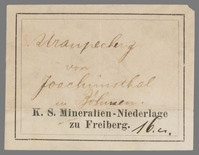 Uranpecherz
von
Joachimsthal
in Böhmen.
K. S. Mineralien-Niederlage
zu Freiberg.